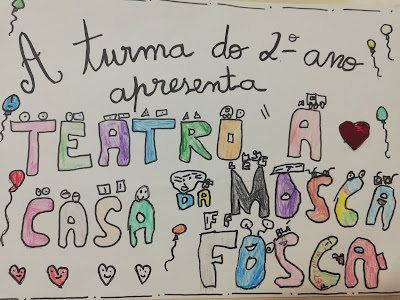 A turma do 2º ano
apresenta
TEATRO " A
CASA DA MOSCA
FOSCA"